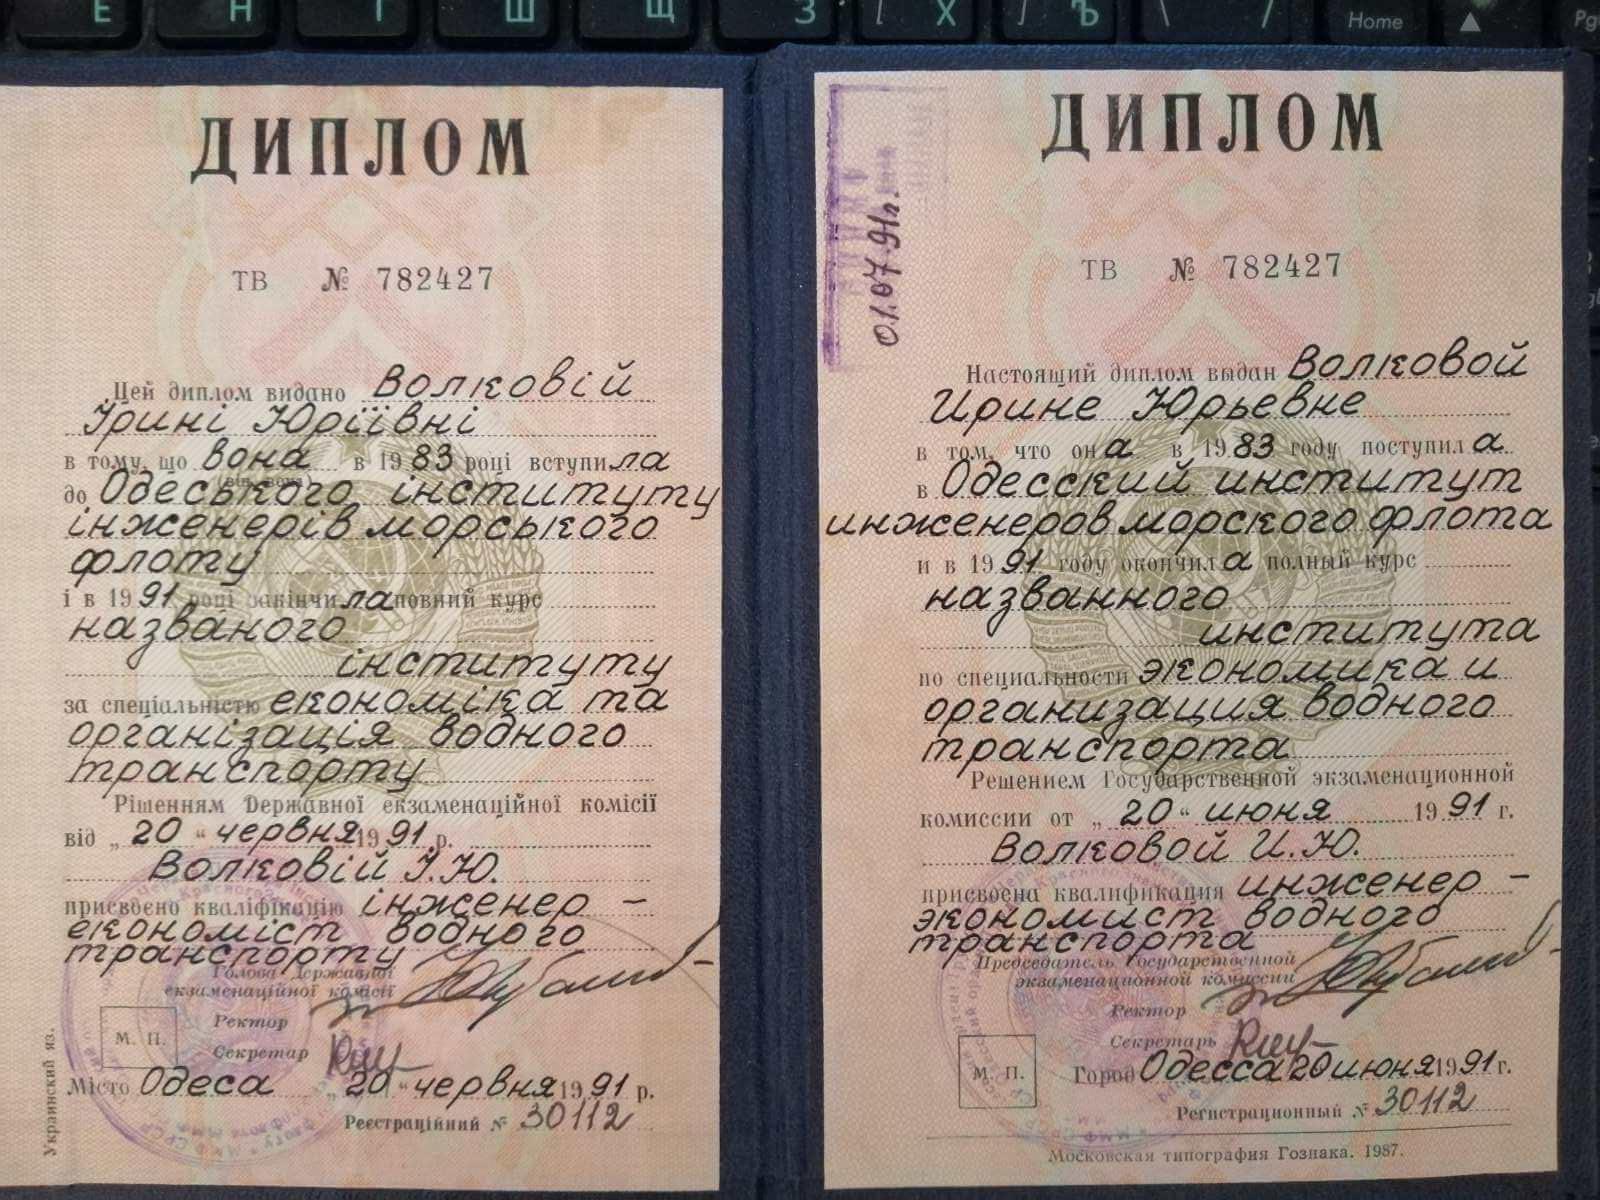 Е Н Г Ш Щ З [ Х ] Ъ \ / Home Pg
ДИПЛОМ
ТВ № 782427
Цей диплом видано Волковій
Ірині Юріївні
в тому, що вона в 1983 році вступила
(він, вона)
до Одеського інституту
інженерів морського
флоту
і в 1991 році закінчила повний курс
названого
інституту
за спеціальністю економіка та
організація водного
транспорту
Рішенням Державної екзаменаційної комісії
від „20“ червня 1991 р.
Волковій І.Ю.
присвоєно кваліфікацію інженер -
економіст водного
транспорту
Голова Державної
екзаменаційної комісії
Ректор
М. П.
Секретар
Місто Одеса „20“ червня 1991 р.
Реєстраційний № 30112
Украинский яз.
ДИПЛОМ
01.07.91г.
ТВ № 782427
Настоящий диплом выдан Волковой
Ирине Юрьевне
в том, что она в 1983 году поступила
в Одесский институт
инженеров морского флота
и в 1991 году окончила полный курс
названного
института
по специальности экономика и
организация водного
транспорта
Решением Государственной экзаменационной
комиссии от „20“ июня 1991 г.
Волковой И.Ю.
присвоена квалификация инженер -
экономист водного
транспорта
Председатель Государственной
экзаменационной комиссии
Ректор
Секретарь
М. П.
Город Одесса 20 июня 1991 г.
Регистрационный № 30112
Московская типография Гознака. 1987.